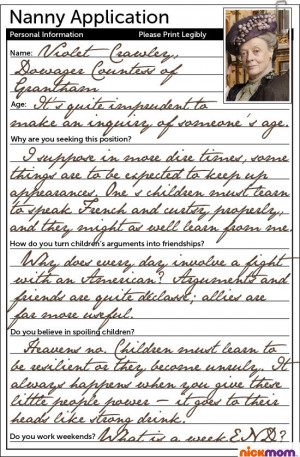 Nanny Application
Personal Information Please Print Legibly
Name: Violet Crawley,
Dowager Countess of
Grantham
Age: It's quite imprudent to
make an inquiry of someone's age.
Why are you seeking this position?
I suppose in more dire times, some
things are to be expected to keep up
appearances. One's children must learn
to speak French and curtsy properly,
and they might as well learn from me.
How do you turn children's arguments into friendships?
Why does every day involve a fight
with an American? Arguments and
friends are quite déclassé; allies are
far more useful.
Do you believe in spoiling children?
Heavens no. Children must learn to
be resilient or they become unruly. It
always happens when you give these
little people power – it goes to their
heads like strong drink.
Do you work weekends? What is a week END?
nickmom.